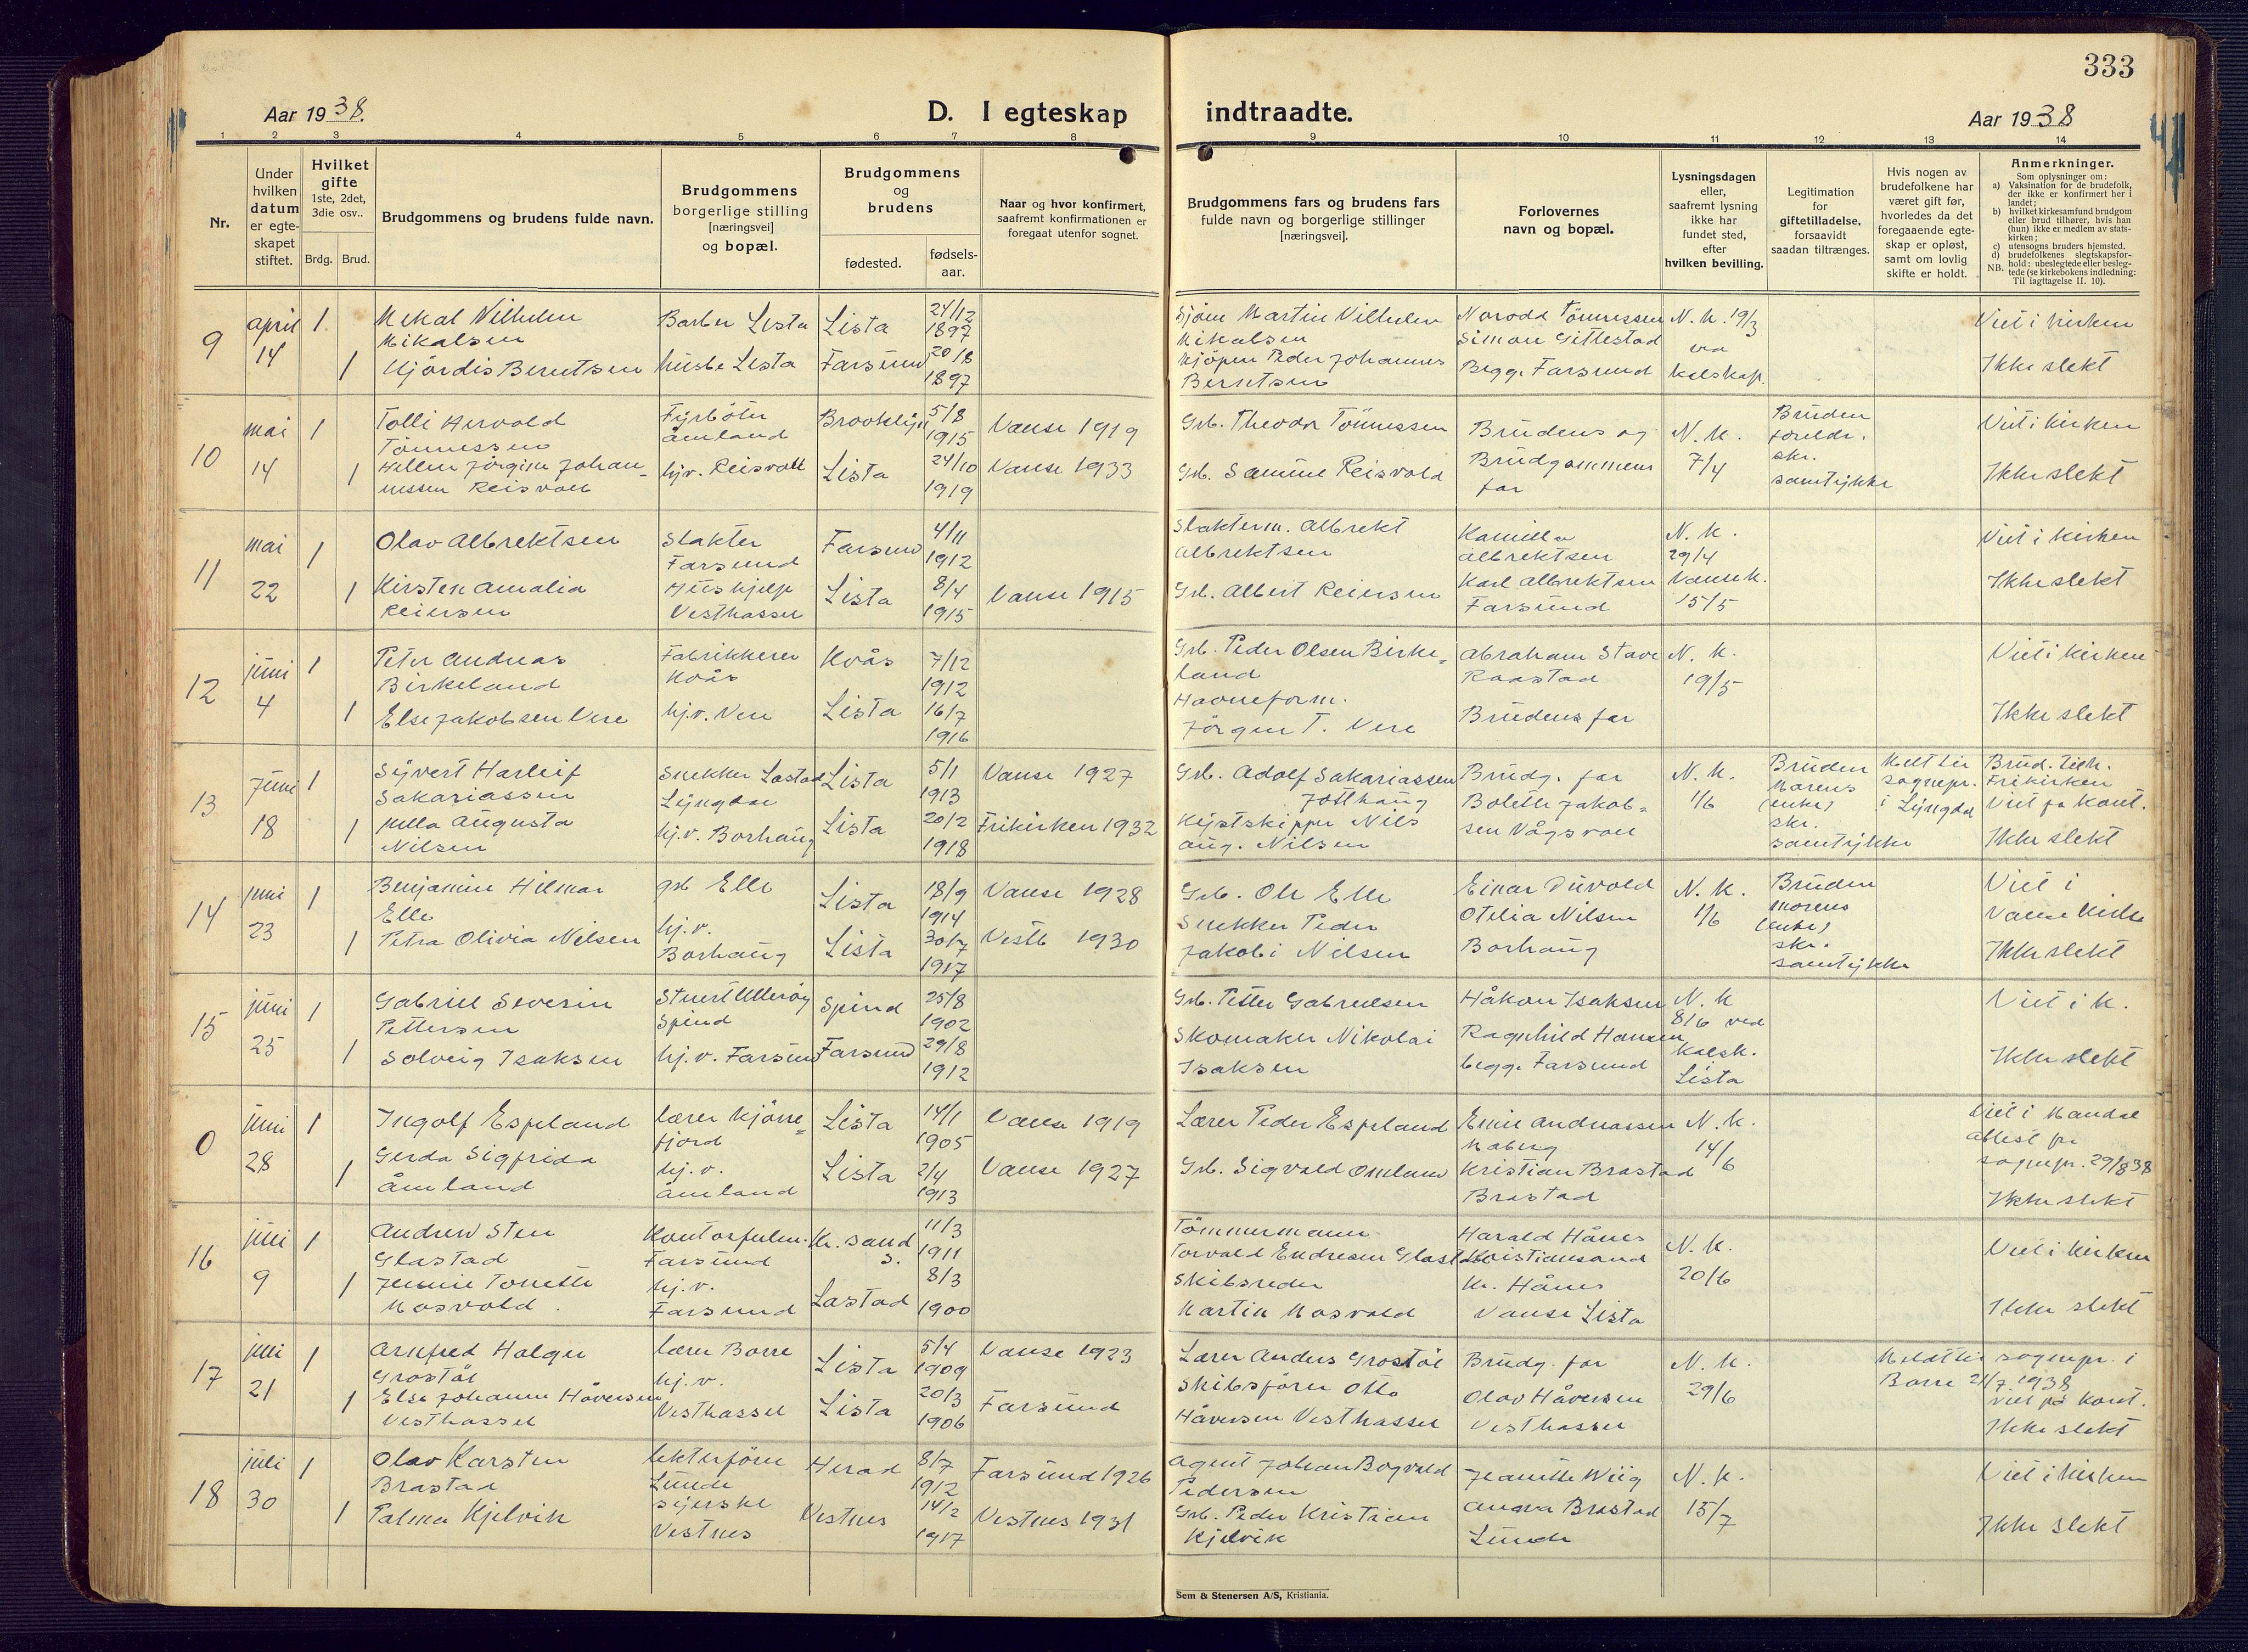 333
Aar 1938.
D. I egteskap
indtraadte.
Aar 1938
1 2 3 4 5 6 7 8 9 10 11 12 13 14
Nr.
Under hvilken datum er egte-skapet stiftet.
Hvilket gifte
1ste, 2det, 3die osv..
Brdg. Brud.
Brudgommens og brudens fulde navn.
Brudgommens borgerlige stilling [næringsvei] og bopæl.
Brudgommens og brudens
fødested.
fødsels-aar.
Naar og hvor konfirmert, saafremt konfirmationen er foregaat utenfor sognet.
Brudgommens fars og brudens fars fulde navn og borgerlige stillinger [næringsvei].
Forlovernes navn og bopæl.
Lysningsdagen eller, saafremt lysning ikke har fundet sted, efter hvilken bevilling.
Legitimation for giftetilladelse, forsaavidt saadan tiltrænges.
Hvis nogen av brudefolkene har været gift før, hvorledes da det foregaaende egte-skap er opløst, samt om lovlig skifte er holdt.
Anmerkninger.
Som oplysninger om:
a) Vaksination for de brudefolk, der ikke er konfirmert her i landet;
b) hvilket kirkesamfund brudgom eller brud tilhører, hvis han (hun) ikke er medlem av stats-kirken;
c) utensogns bruders hjemsted.
d) brudefolkenes slegtskapsfor-hold: ubeslegtede eller besleg-tede (se kirkebokens indledning: Til iagttagelse II. 10).
NB.
9 april 14 1
Mikal Vilhelm
Mikalsen
Barber Lista
Lista
24/12
1897
Martin Vilhelm
Mikalsen
Simon Gittestad
N. K. 19/3
Viet i kirken
1 Hjördis Berntsen
Lista
Farsund
20/8
1897
Peder Johannes
Berntsen
Begge Farsund
Ikke slekt
10 mai 14 1
Tolli Hervald
Tönnessen
Fyrböter
Åmland
Brooklyn
5/8
1915
Vanse 1919
Grb. Theodor Tönnessen
Brudens og
Brudgommens
far
N. K.
7/4
Bruden
foreldr.
skr.
samtykke
Viet i kirken
1 Jörgine Johan-
nessen Reisvoll
hj.v. Reisvoll
Lista
24/10
1919
Vanse 1933
Grb. Samuel Reisvold
Ikke slekt
11 mai 22 1
Olav Albrektsen
Slakter
Farsund
Farsund
4/11
1912
Slakterm. Albrekt
Albrektsen
Kamilla
Albrektsen
N. K.
29/4
Viet i kirken
1 Kirsten Amalia
Reiersen
Hushjelp
Vesthassel
Lista
8/4
1915
Vanse 1915
Grb. Albert Reiersen
Karl Albrektsen
Farsund
Vanse k.
15/5
Ikke slekt
12 juni 4 1
Peter Andreas
Birkeland
Kvås
Kvås
7/12
1912
Grb. Peder Olsen Birke=
land
Abraham Stave
N. K.
19/5
Viet i kirken
1 Else Jakobsen Vere
hj.v. Vere
Lista
16/7
1916
Havneform.
Jörgen T. Vere
Brudens far
Ikke slekt
13 Juni 18 1
Syvert Harleif
Sakariassen
Snekker Lastad
Lyngdal
Lista
5/1
1913
Vanse 1927
Grb. Adolf Sakariassen
Jölhaug
Brudg. far
N. K.
1/6
Bruden
Morens
(enke)
skr.
samtykke
Meldt til
sognepr.
i Lyngdal
Brud. tilh.
Frikirken
Viet på kont.
1 Augusta
Nilsen
hj.v. Borhaug
Lista
20/2
1918
Frikirken 1932
Kystskipper Nils
Aug. Nilsen
Bolette Jakob=
sen Vågsvoll
Ikke slekt
14 juni 23 1
Benjamin Hilmar
Elle
grb Elle
Lista
18/9
1914
Vanse 1928
Grb. Ole Elle
Einar Duvold
N. K.
1/6
Bruden
morens
(enke)
skr.
samtykke
Viet i
Vanse kirke
1 Petra Olivia Nilsen
hj.v.
Borhaug
Lista
30/7
1917
Vestb 1930
Snekker Peder
Jakobi Nilsen
Otelia Nilsen
Borhaug
Ikke slekt
15 juni 25 1
Gabriel Severin
Pettersen
Stuert Ulleröy
Spind
Spind
25/8
1902
Grb. Petter Gabrielsen
Håkon Isaksen
N. K
8/6 ved
kalsk.
Lista
Viet i k.
1 Solveig Isaksen
hj.v. Farsund
Farsund
29/8
1912
Skomaker Nikolai
Isaksen
Ragnhild Hansen
begge Farsund
Ikke slekt
0 juni 28 1
Ingolf Espeland
lærer Kjörre=
fjord
Lista
14/1
1905
Vanse 1919
Lærer Peder Espeland
Emil Andreassen
Maberg
N. K.
14/6
Viet i Mandal
attest fra
sognepr. 29/8 38
1 Gerda Sigfrida
Åmland
hj.v.
Åmland
Lista
2/4
1913
Vanse 1927
Grb. Sigvald Omland
Kristian Brastad
Brastad
Ikke slekt
16 juli 9 1
Andrew Sten
Glastad
Farsund
Kr. sand
S.
11/3
1911
Tömmermann
Torvald Endresen Glastad
Harald Hånes
Kristiansand
N. K.
20/6
Viet i kirken
1 Jennie Tonette
Mosvold
hj.v.
Farsund
Lastad
8/3
1900
Skibsreder
Martin Mosvold
Kr. Hånes
Vanse Lista
Ikke slekt
17 juli 21 1
Arnfred Holger
Grostöl
lærer Borre
Lista
5/4
1909
Vanse 1923
Lærer Anders Grostöl
Brudg. far
N. K.
29/6
Meldt til sognepr. i
Borre 21/7 1938
viet på kont.
1 Else Johanne Håversen
Vesthassel
hj.v.
Vesthassel
Lista
20/3
1906
Farsund
Skibsförer Otto
Håversen Vesthassel
Olav Håversen
Vesthassel
Ikke slekt
18 juli 30 1
Olav Karsten
Brastad
lekterförer
Lunde
Herad
8/7
1912
Farsund 1926
Agent Johan Bogvald
Pedersen
Jeanette Wiig
N. K.
15/7
Viet i kirken
1 Palma Kjelvik
syerske
Vestnes
Vestnes
14/2
1917
Vestnes 1931
Grb. Peder Kristian
Kjelvik
Brastad
Lunde
Ikke slekt
Sem & Stenersen A/S, Kristiania.